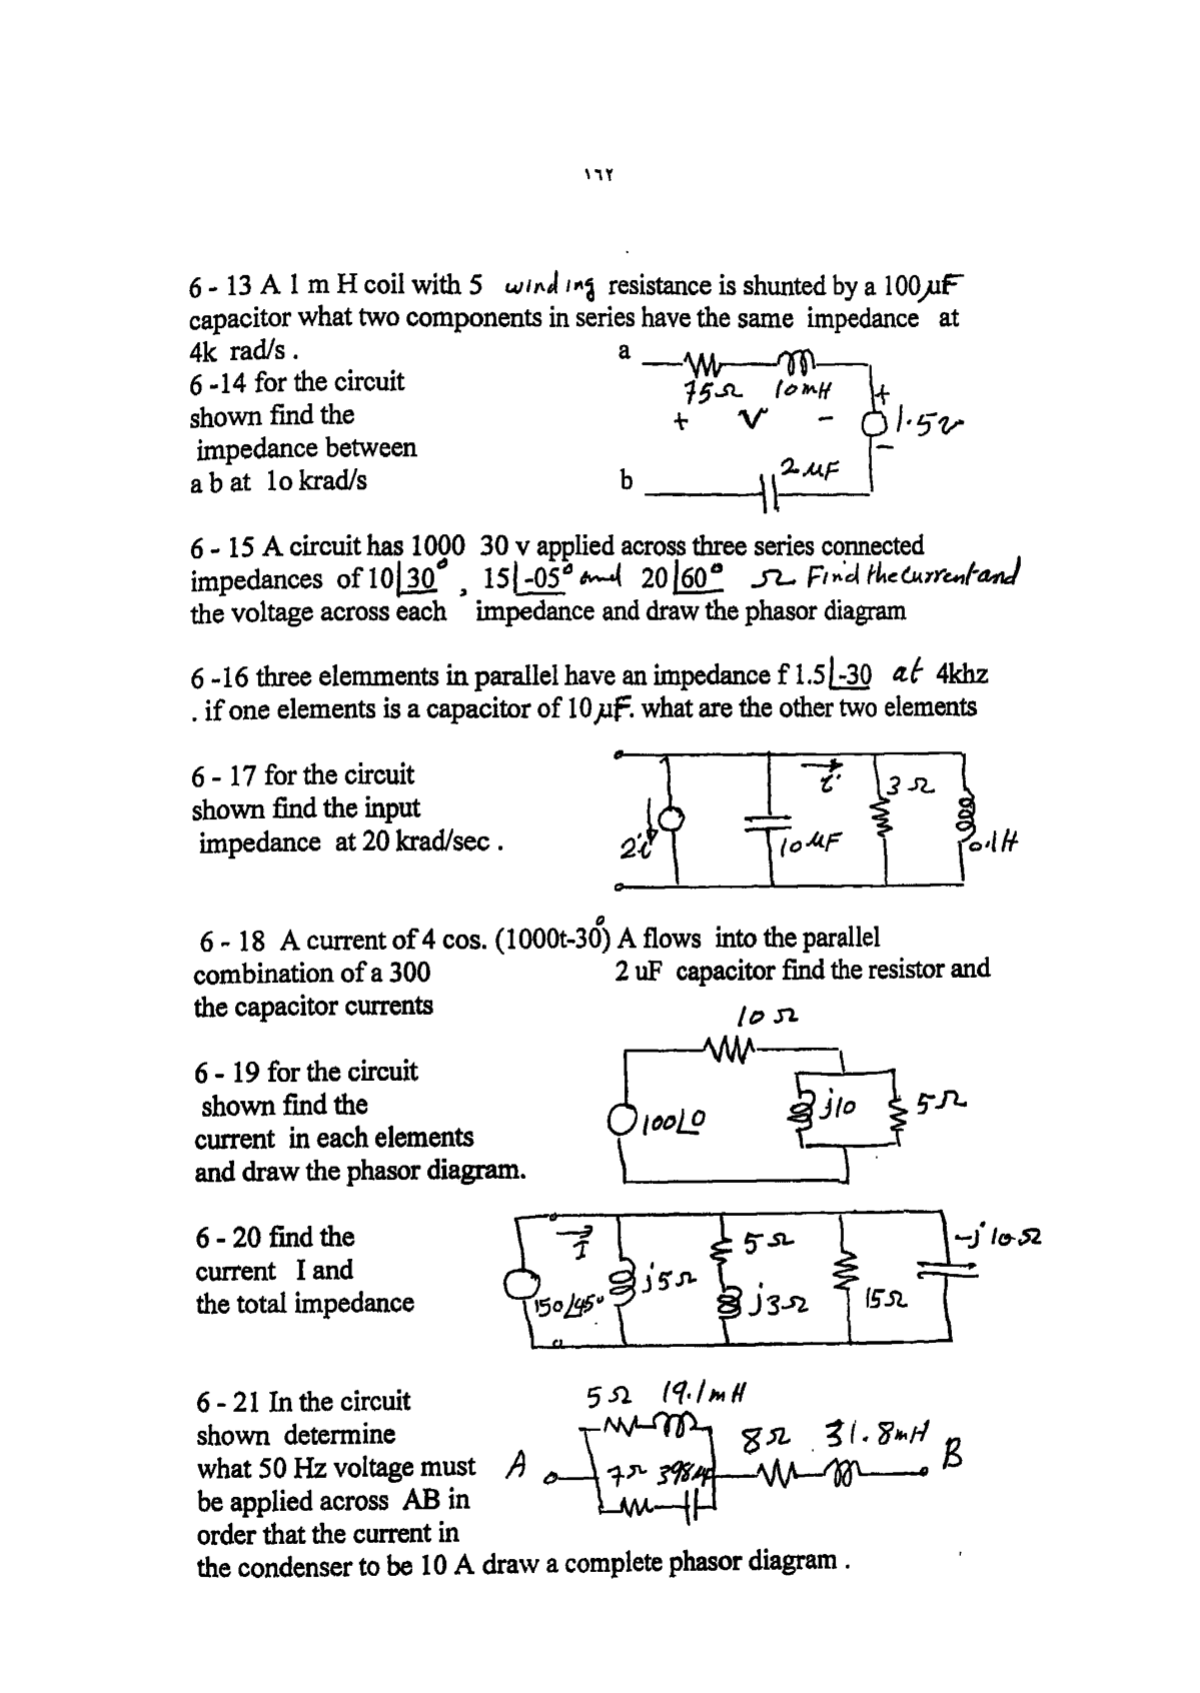 ١٦٢
6 - 13 A 1 m H coil with 5 winding resistance is shunted by a 100 μF
capacitor what two components in series have the same impedance at
4k rad/s .
6 -14 for the circuit
shown find the
impedance between
a b at 1o krad/s
a
75Ω 10mH
+ V -
+
1.5v
-
2 μF
b
6 - 15 A circuit has 1000 30 v applied across three series connected
impedances of 10|30° , 15|-05° and 20|60° Ω Find the current and
the voltage across each impedance and draw the phasor diagram
6 -16 three elemments in parallel have an impedance f 1.5|-30 at 4khz
. if one elements is a capacitor of 10 μF. what are the other two elements
6 - 17 for the circuit
shown find the input
impedance at 20 krad/sec .
2i
i
10 μF
3 Ω
0.1H
6 - 18 A current of 4 cos. (1000t-30°) A flows into the parallel
combination of a 300 2 uF capacitor find the resistor and
the capacitor currents
6 - 19 for the circuit
shown find the
current in each elements
and draw the phasor diagram.
10 Ω
100∠0
j10
5Ω
6 - 20 find the
current I and
the total impedance
I
150∠45°
j5Ω
5Ω
j3Ω
15Ω
-j10Ω
6 - 21 In the circuit
shown determine
what 50 Hz voltage must
be applied across AB in
order that the current in
the condenser to be 10 A draw a complete phasor diagram .
5Ω 19.1mH
8Ω 31.8mH
A
7Ω 398μF
B